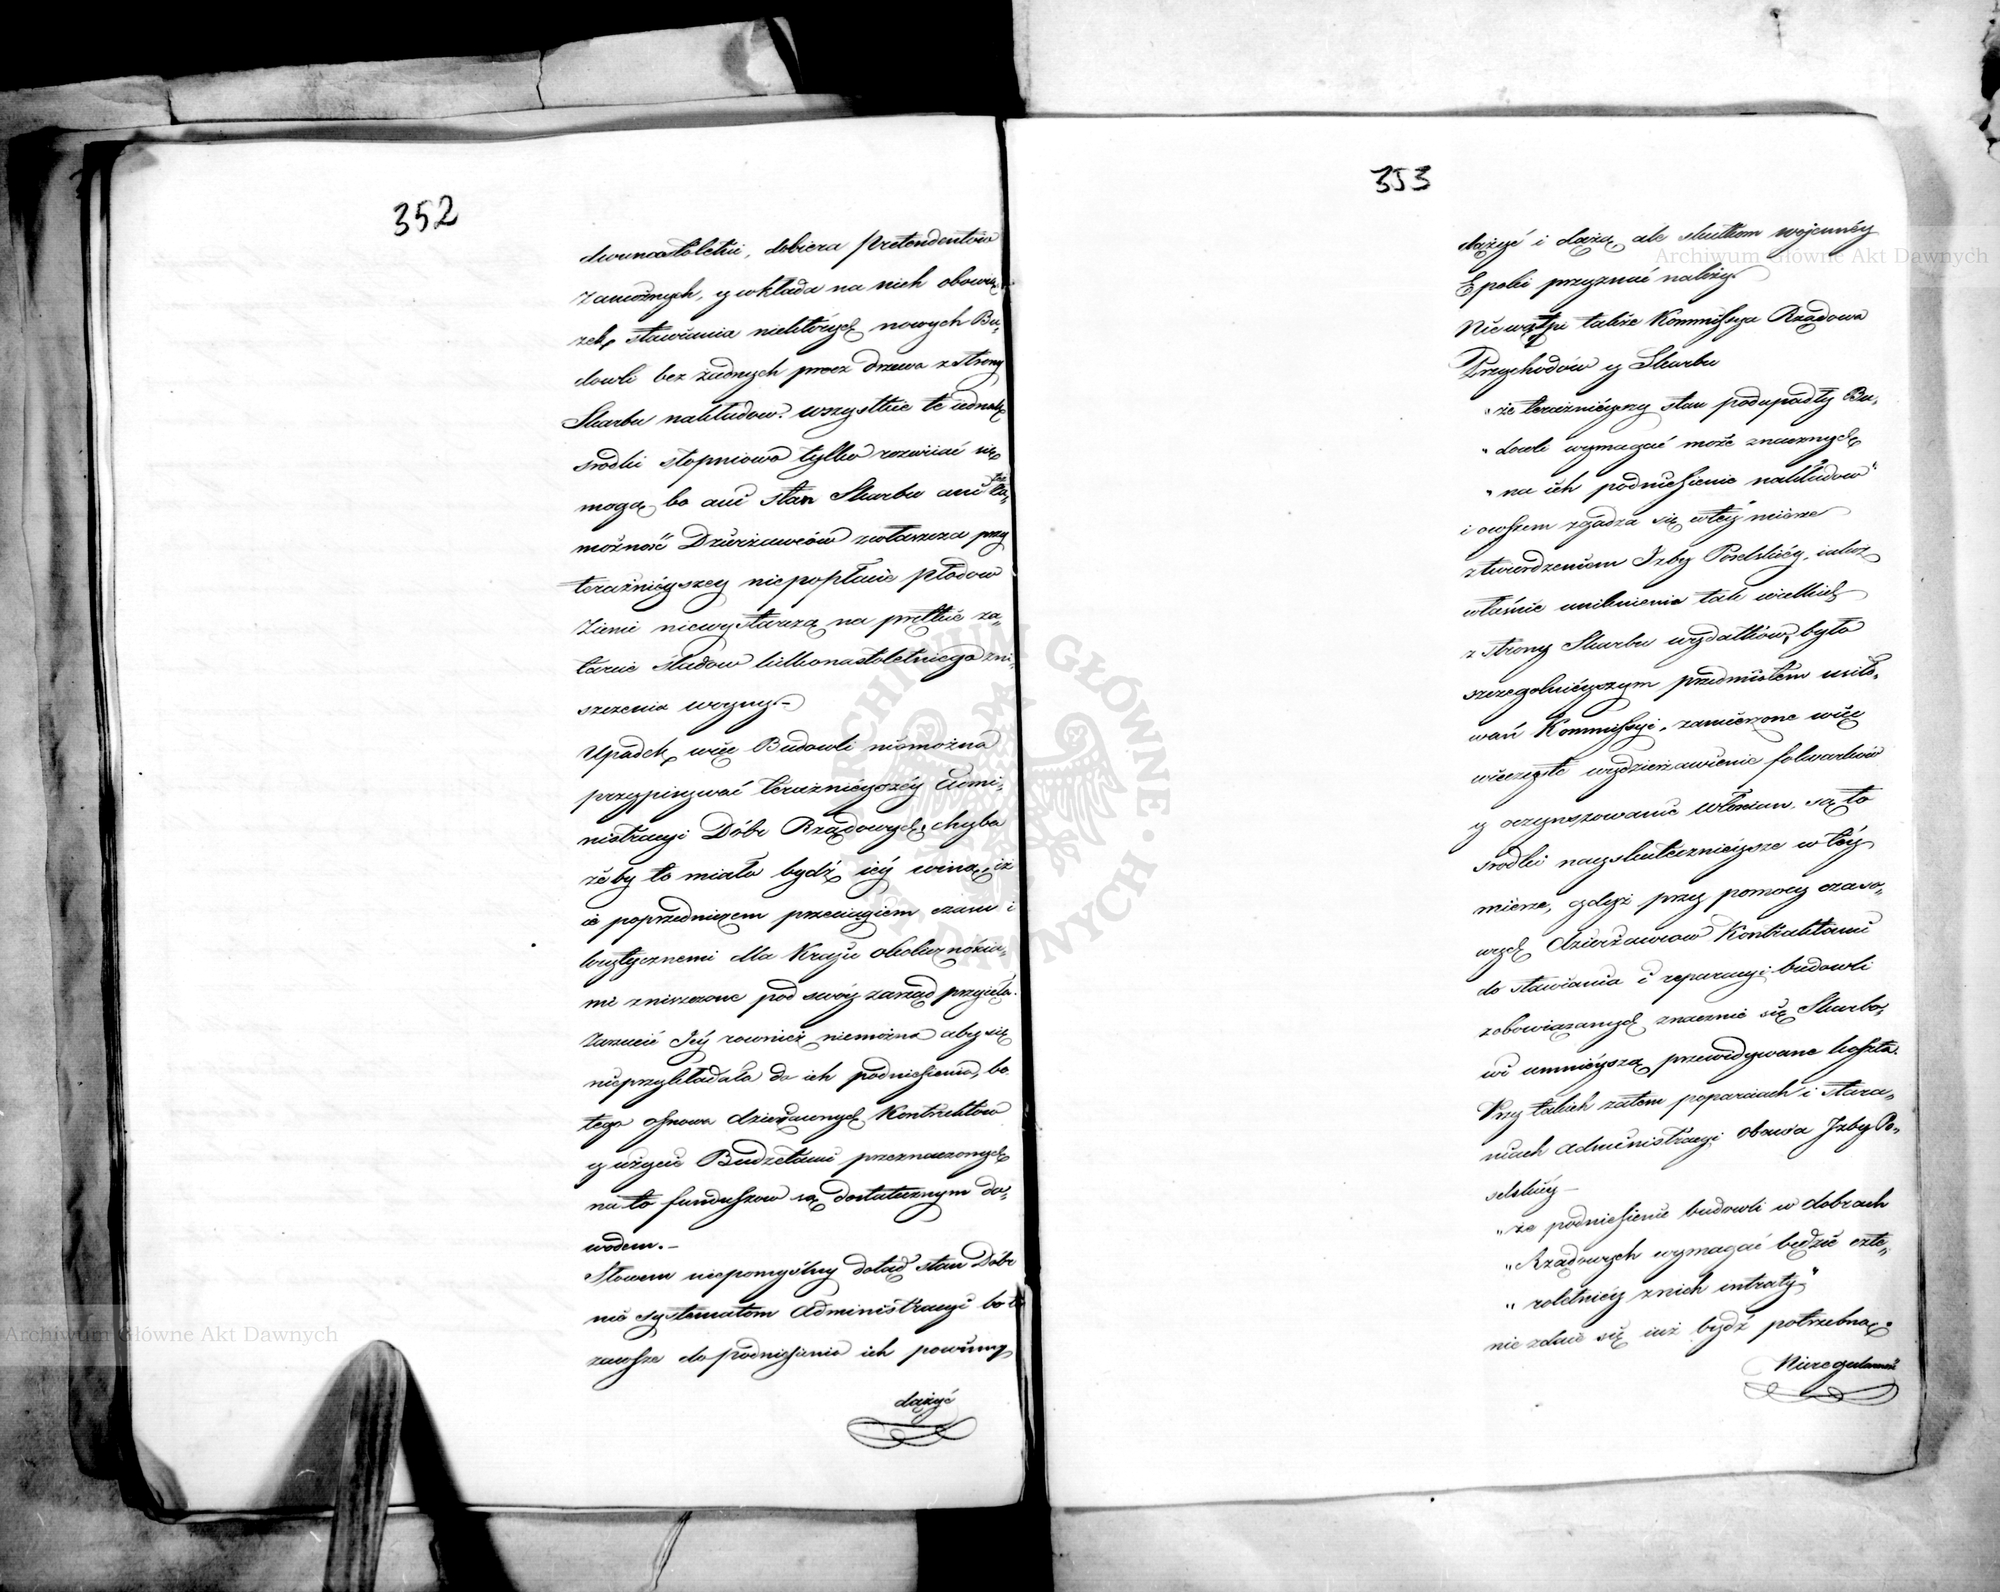 352
dwunastoletni, dobiera Pretendentów
zamożnych, y wkłada na nich obowią„
zek, stawiania niektórych nowych Bu„
dowli bez żadnych procz drzewa z strony
Skarbu nakładow. wszystkie te iednak
srodki stopniowo tylko rozwiiać się
mogą, bo ani stan Skarbu ani też za„
możność Dzierżawców zwłaszcza przy
teraźnieyszey niepopłacie płodow
Ziemi niewystarczą na prętkie za„
tarcie śladow kilkonastoletniego zni„
szczenia woyny.—
Upadek, więc Budowli niemożna
przypisywać teraźnieyszéy Admi„
nistracyi Dóbr Rządowych, chyba
żeby to miało bydź iéy winą, iż
ie poprzedniczem przeciągiem czasu i
krytycznemi dla Kraju okolicznościa„
mi zniszczone pod swóy zarząd przyięła.
Zarzucić Jéy rownież niemożna aby się
nieprzykładała do ich podniesienia, bo
tego osnowa dzierżawnych Kontraktów
y użycie Budżetami przeznaczonych
na to funduszow są dostatecznym do„
wodem.—
Słowem niepomyślny dotąd stan Dóbr
nie systematom Administracyi bo te
zawsze do podniesienia ich powinny
dążyć
353
dążyć i dążą, ale skutkom wojennéy
Epoki przyznać należy.
Niewątpi także Kommissya Rządowa
Przychodów y Skarbu
„że teraźnieyszy stan podupadły Bu„
„dowli wymagać może znacznych
„na ich podniesienie nakładow"
i owszem zgadza się w téy mierze
z twierdzeniem Izby Poselskiéy, iakoż
właśnie uniknienie tak wielkich
z strony Skarbu wydatków, było
szczegolnieyszym przedmiotem usiło„
wań Kommissyi, zamierzone więc
wieczyste wydzierżawienie folwarków
y oczynszowanie Włościan, są to
srodki nayskutecznieysze w téy
mierze, gdyż przy pomocy czaso„
wych dzierżawcow Kontraktami
do stawiania i reparacyi budowli
zobowiązanych znacznie się Skarbo„
wi umnieyszą przewidywane koszta.
Przy takich zatem poparciach i stara„
niach administracyi obawa Izby Po„
selskiéy—
„że podniesienie budowli w dobrach
„Rządowych wymagać będzie czte„
„roletniéy z nich intraty"
nie zdaie się iuż bydź potrzebną.
Nieregularność
Archiwum Główne Akt Dawnych
Archiwum Główne Akt Dawnych
ARCHIWUM GŁÓWNE AKT DAWNYCH